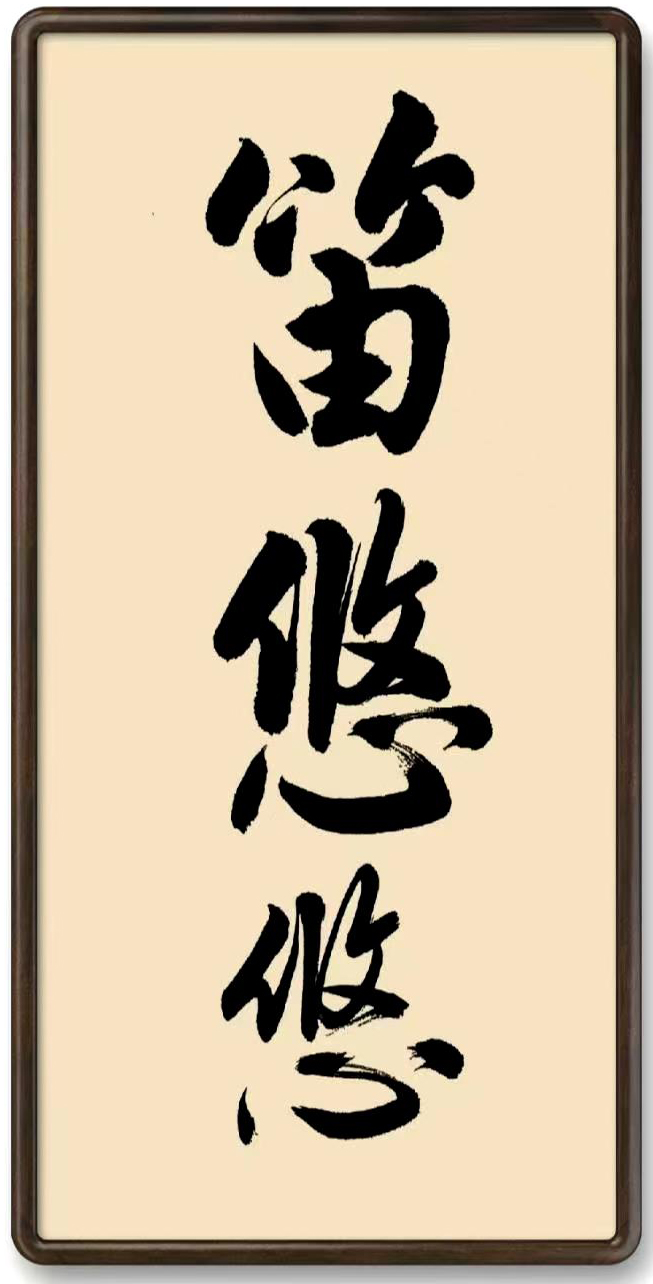 笛悠悠